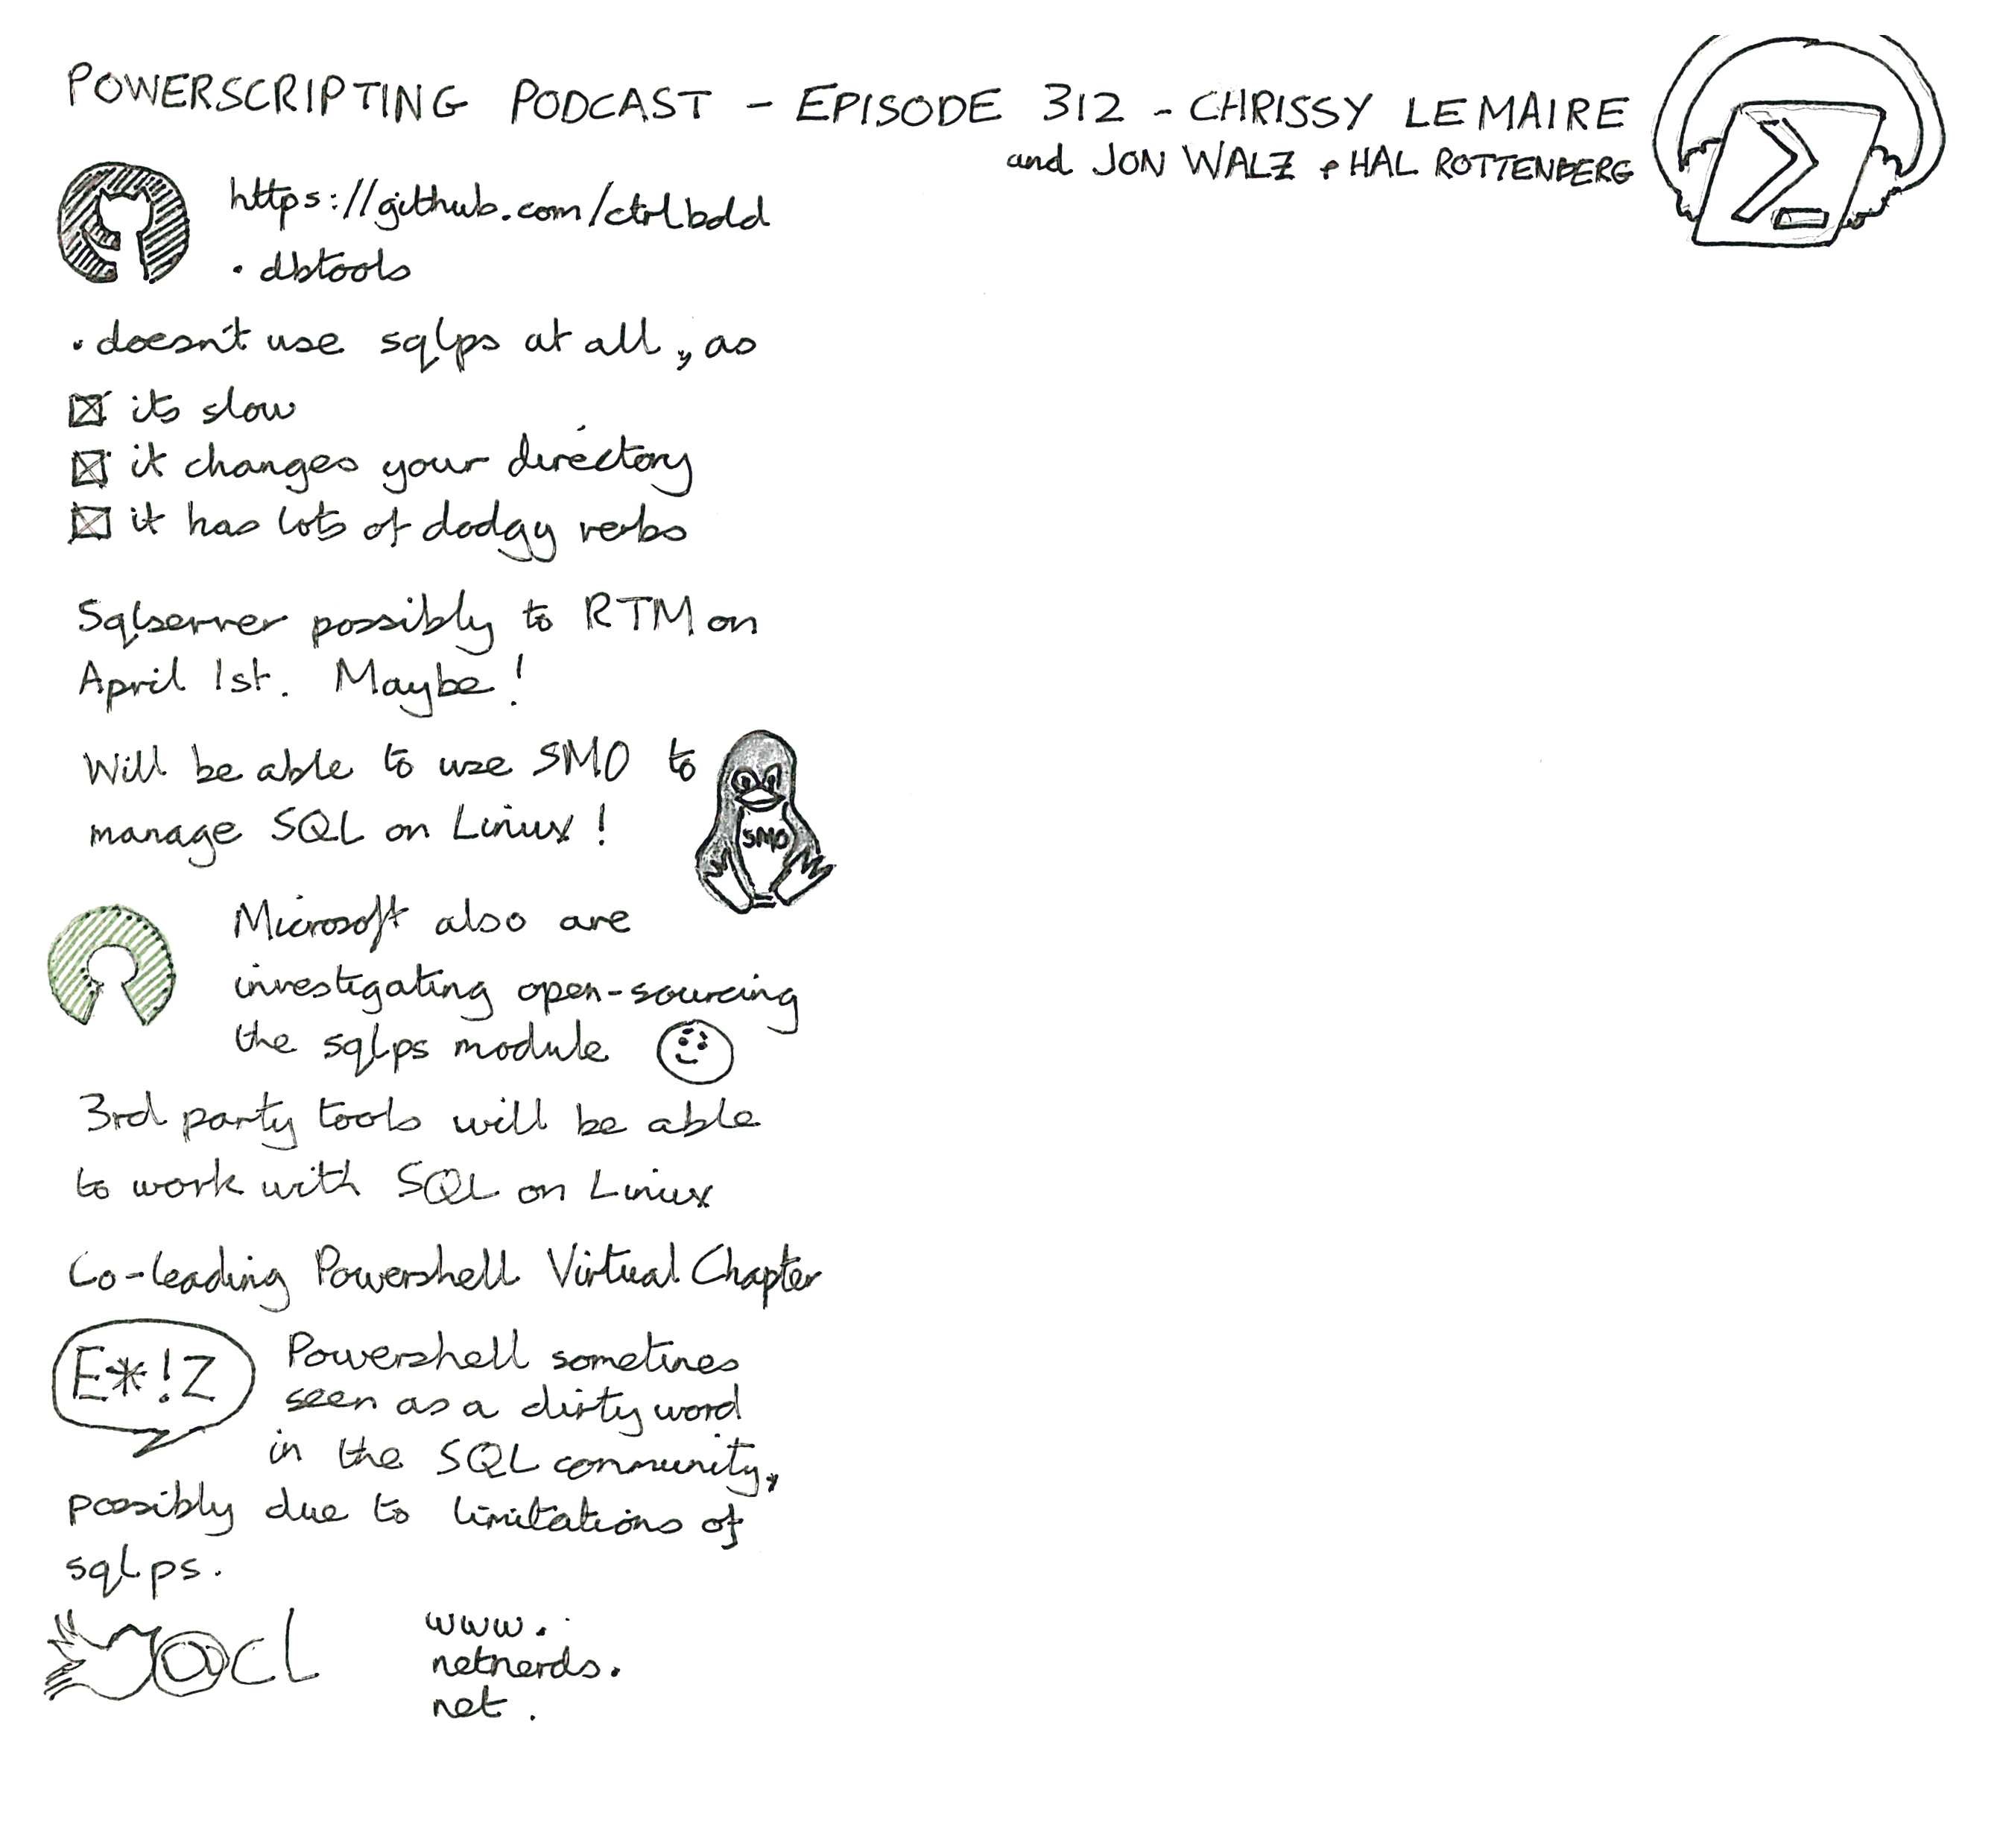 POWERSCRIPTING PODCAST - EPISODE 312 - CHRISSY LEMAIRE
and JON WALZ + HAL ROTTENBERG
https://github.com/ctrlbold
• dbtools
• doesn't use sqlps at all, as
its slow
it changes your directory
it has lots of dodgy verbs
Sqlserver possibly to RTM on
April 1st. Maybe!
Will be able to use SMO to
manage SQL on Linux!
SMO
Microsoft also are
investigating open-sourcing
the sqlps module
3rd party tools will be able
to work with SQL on Linux
Co-leading Powershell Virtual Chapter
E*!Z
Powershell sometimes
seen as a dirty word
in the SQL community,
possibly due to limitations of
sqlps.
@cl
www.
netnerds.
net.